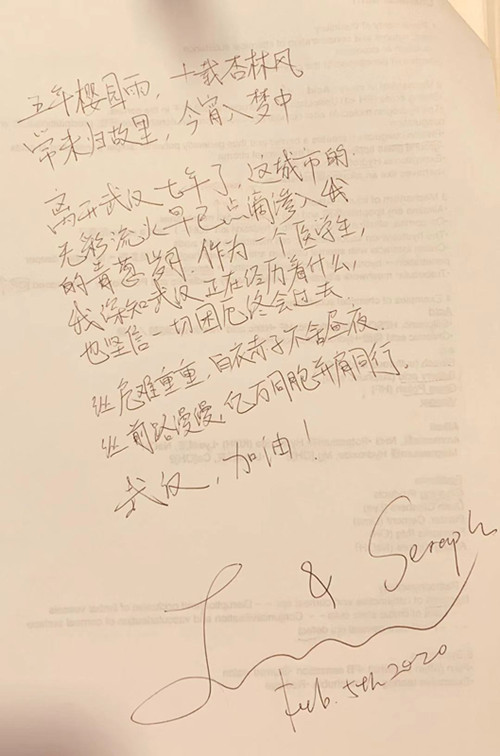 五年樱园雨，十载杏林风
带来归故里，今宵入梦中
离开武汉七年了，这城市的
无形流火早已点滴渗入我
的青葱岁月．作为一个医学生，
我深知武汉正在经历着什么，
也坚信一切困厄终会过去．
纵危难重重，白衣赤子不舍昼夜．
纵前路漫漫，亿万同胞并肩同行．
武汉，加油！
& Seraph
Feb. 5th 2020